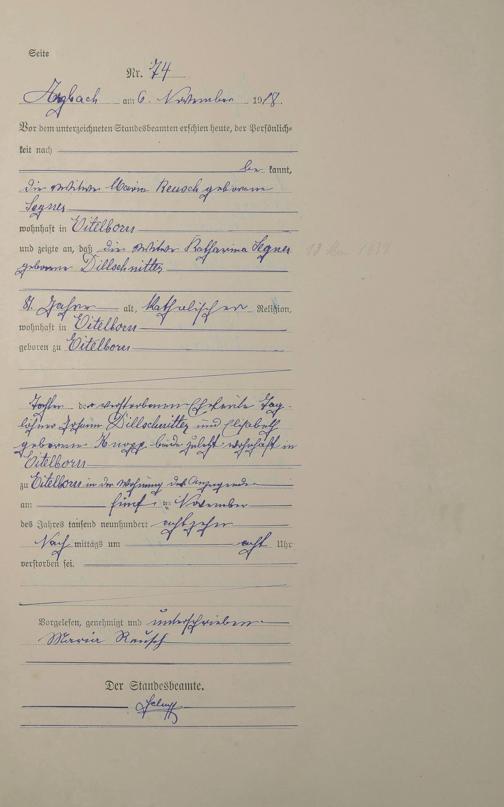 Seite
Nr. 74
Arzbach am 6. November 1918.
Vor dem unterzeichneten Standesbeamten erschien heute, der Persönlich-
keit nach
be kannt,
die Witwe Maria Reusch geborene
Segner
wohnhaft in Eitelborn
und zeigte an, daß die Witwe Katharina Segner
geborene Dillschnitter
81 Jahre alt, katholischer Religion,
wohnhaft in Eitelborn
geboren zu Eitelborn
Tochter der verstorbenen Eheleute Tag-
löhner Dillschnitter und Elisabeth
geborene Knopp beide zuletzt wohnhaft in
Eitelborn
zu Eitelborn in der Wohnung der Anzeigende
am fünf ten November
des Jahres tausend neunhundert achtzehn
Nach mittags um acht Uhr
verstorben sei.
Vorgelesen, genehmigt und unterschrieben
Maria Reusch
Der Standesbeamte.